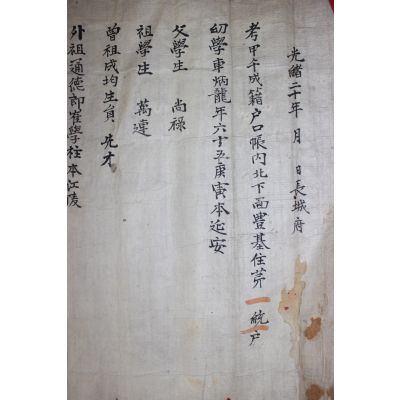 光緒二十年 月 日長城府
考甲午成籍户口帳内北下面豊基住苐一統户
幼學車炳龍年六十五庚寅本延安
父學生 尚祿
祖學生 萬達
曾祖成均生員 先才
外祖通德郎崔學柱本江陵